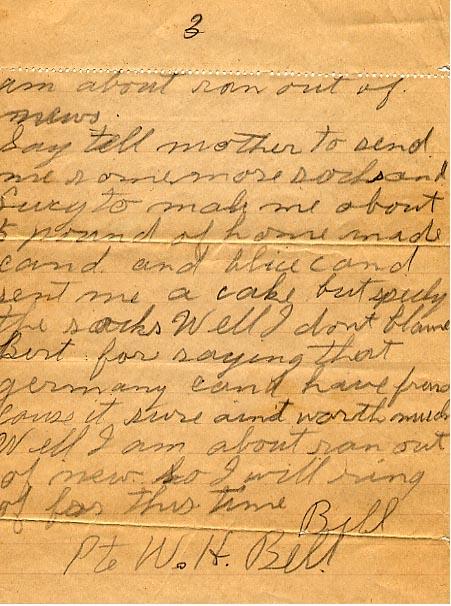 3
am about ran out of
news.
Say tell mother to send
me some more socks and
to make me about
5 pound of home made
cand. and blue cand
sent me a cake but
the socks Well I dont blame
Bert for saying that
germany cand have
cause it sure aint worth much
Well I am about ran out
of new. so I will ring
of for this time
Bill
Pte W. H. Bell.